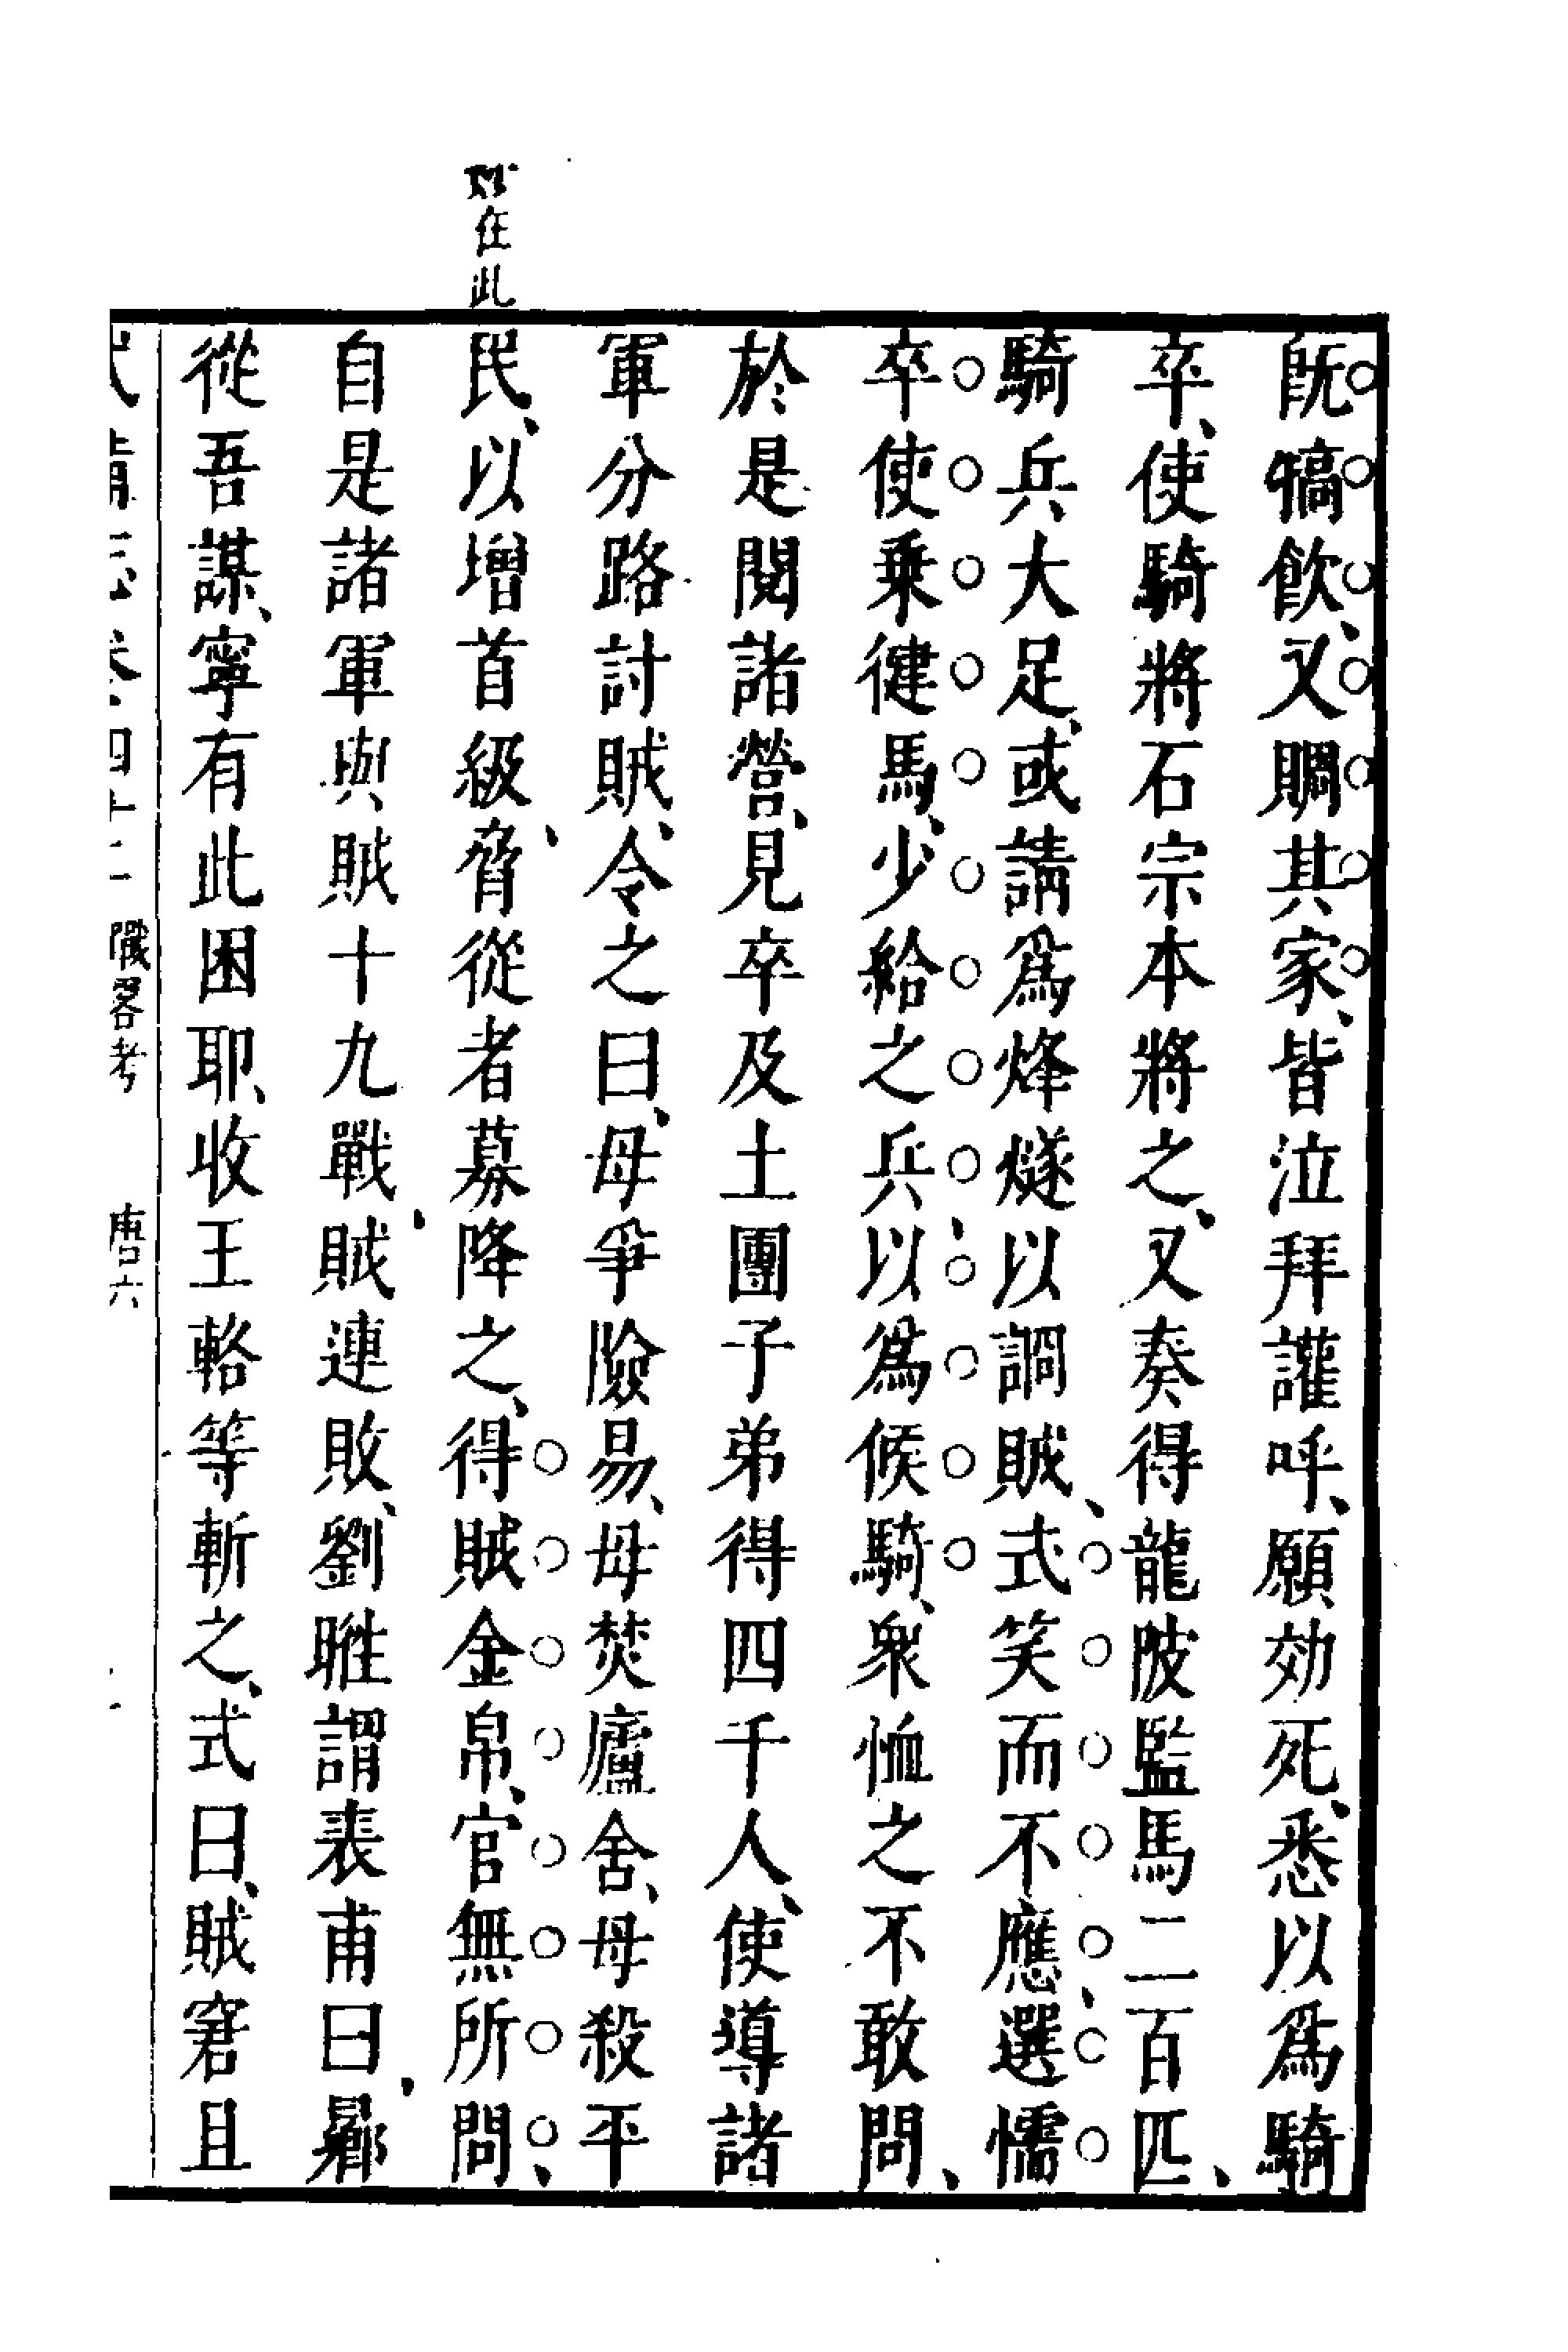 既犒飲、又賙其家、皆泣拜讙呼、願効死、悉以爲騎
卒、使騎將石宗本將之、又奏得龍陂監馬二百匹、
騎兵大足、或請爲烽燧以詗賊、式笑而不應、選懦
卒使乗健馬、少給之兵、以爲候騎、衆恠之不敢問、
於是閱諸營、見卒及土團子弟得四千人、使導諸
軍分路討賊、令之曰、毋爭險易、毋焚廬舍、毋殺平
民、以增首級、脅從者募降之、得賊金帛、官無所問、
自是諸軍與賊十九戰、賊連敗、劉暀謂裘甫曰、曏
從吾謀、寧有此困耶、收王輅等斬之、式曰、賊窘且
在此
武備志卷四十二 戰畧考 唐六